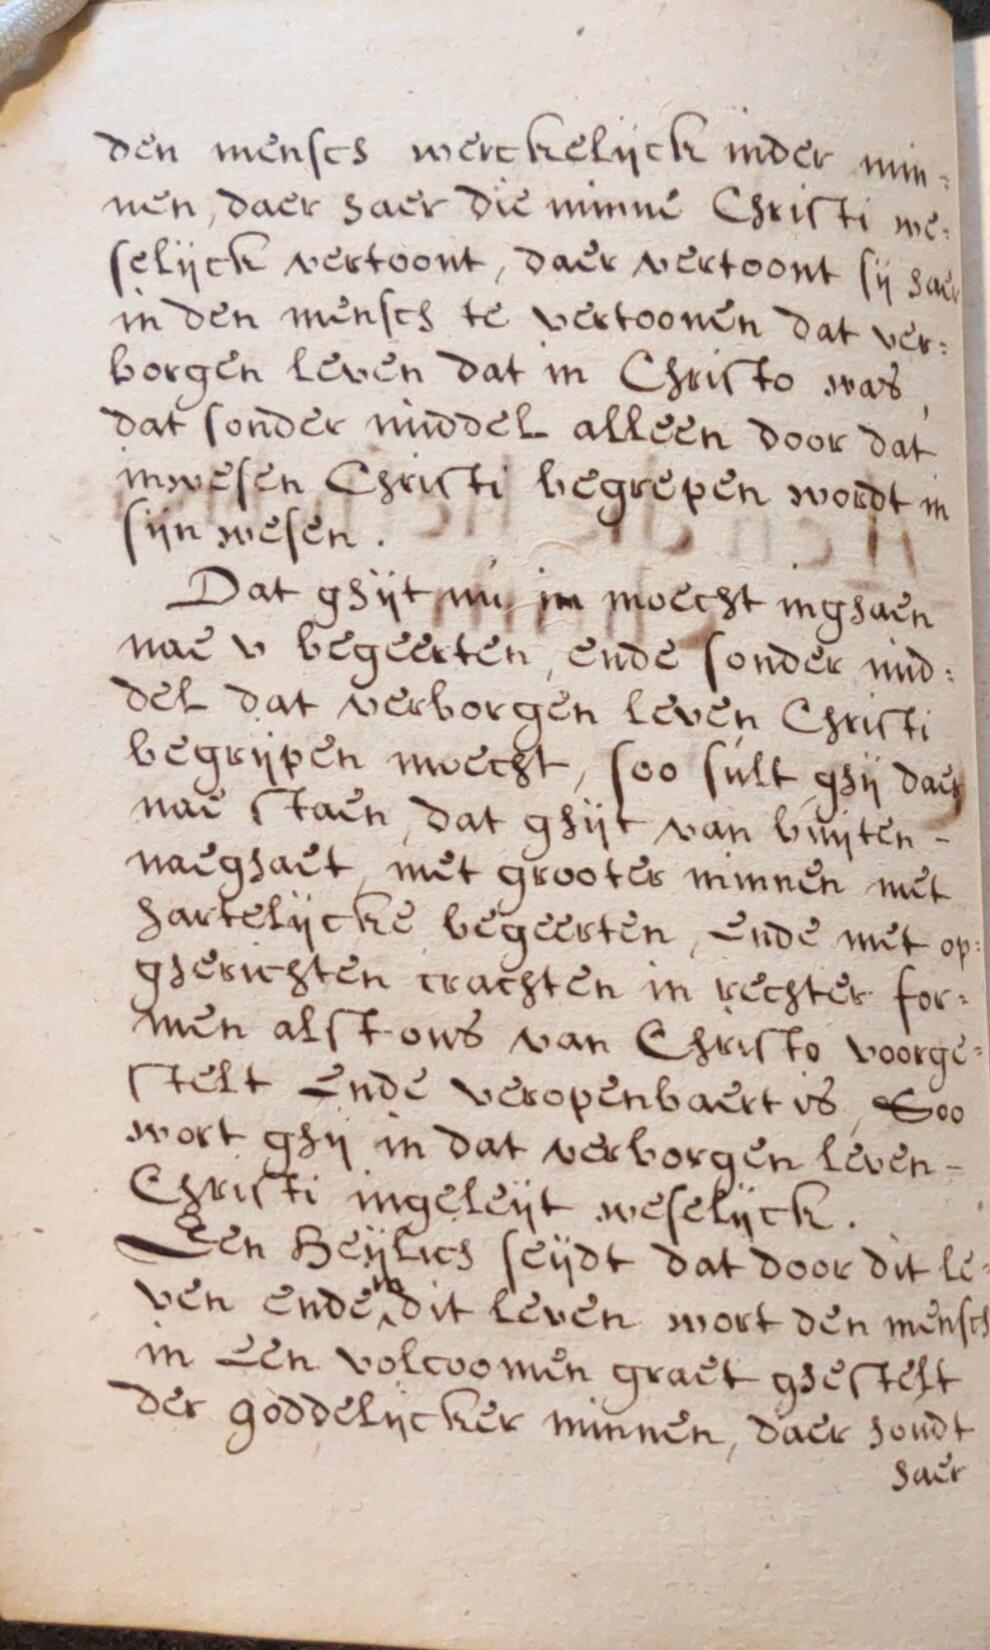 den mensch werckelijck inder min=
nen, daer haer die minne Christi we=
selijck vertoont, daer vertoont sij haer
in den mensch te vertoonen dat ver=
borgen leven dat in Christo was,
dat sonder middel alleen door dat
inwesen Christi begrepen wordt in
sijn wesen.
Dat ghijt nu in moecht inghaen
nae v begeerten, ende sonder mid=
del dat verborgen leven Christi
begrijpen moecht, soo sult ghij daer
nae staen, dat ghijt van buijten -
naeghaet, met grooter minnen met
hartelijcke begeerten, ende met op=
gherichten crachten in rechter for=
men alst ons van Christo voorge=
stelt ende veropenbaert is, Soo
wort ghij in dat verborgen leven -
Christi ingeleijt weselijck.
Een Heijlich seijdt dat door dit le=
ven ende in dit leven wort den mensch
in een volcoomen graet ghestelt
der goddelijcker minnen, daer houdt
haer